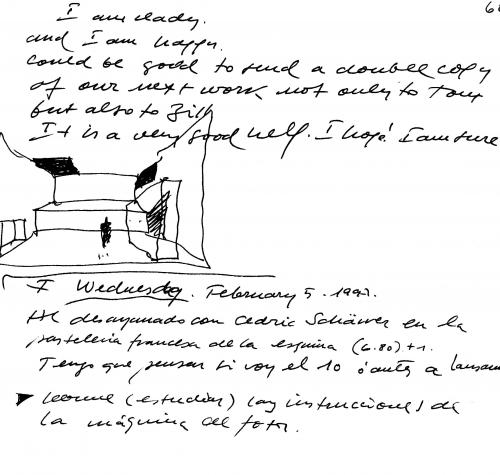 I am ready.
and I am happy.
could be good to send a double copy
of our next work not only to Tom
but also to Bill
It is a very good help. I hope! I am sure
Wednesday. February 5. 199
desayunado con Cedric en la
pasteleria francesa de la esquina (6.80) +1.
Tengo que pensar si voy el 10 ó antes a
leerme (estudiar) las instrucciones de
la máquina de fotos.